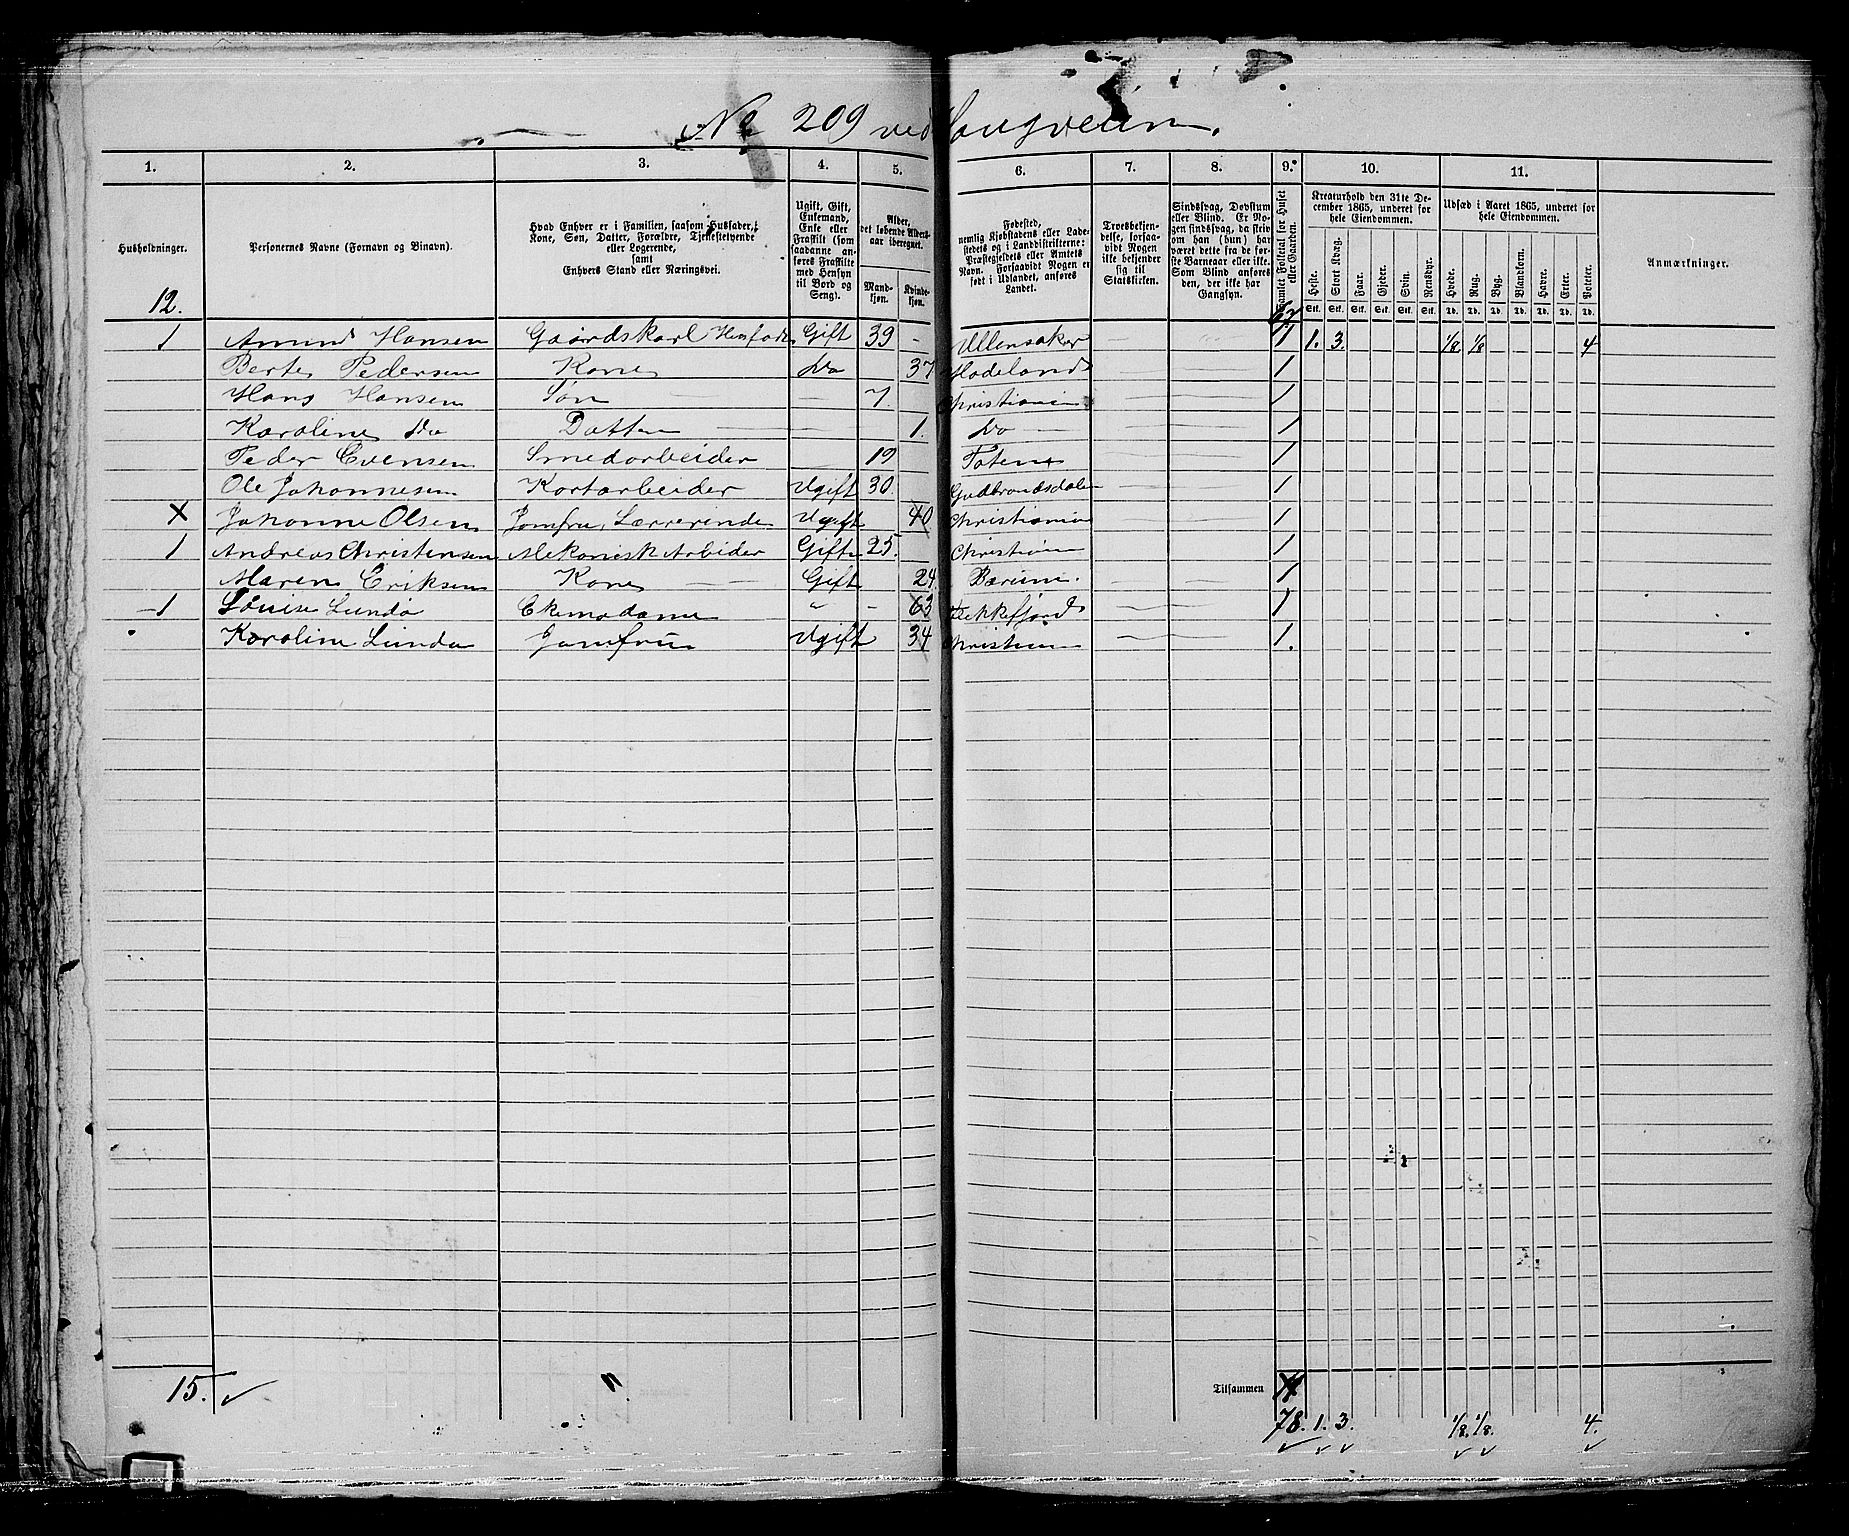 No 209 ved Haugveien.
1. 2. 3. 4. 5. 6. 7. 8. 9. 10. 11.
Husholdninger.
Personernes Navne (Fornavn og Binavn).
Hvad Enhver er i Familien, saasom Husfader, Kone, Søn, Datter, Forældre, Tjenestetyende eller Logerende, samt Enhvers Stand eller Næringsvei.
Ugift, Gift, Enkemand, Enke eller Fraskilt (som saadanne anføres Fraskilte med Hensyn til Bord og Seng).
Alder, det løbende Alders-aar iberegnet.
Mand-kjøn. Kvinde-kjøn.
Fødested, nemlig Kjøbstadens eller Ladestedets og i Landdistrikterne: Præstegjeldets eller Amtets Navn. Forsaavidt Nogen er født i Udlandet, anføres Landet.
Troesbekjendelse, forsaavidt Nogen ikke bekjender sig til Statskirken.
Sindssvag, Døvstum eller Blind. Er Nogen sindssvag, da skriv om han (hun) har været dette fra de første Barneaar eller ikke. Som Blind anføres den, der ikke har Gangsyn.
Samlet Folketal for Huset eller Gaarden.
Kreaturhold den 31te December 1865, underet for hele Eiendommen.
Udsæd i Aaret 1865, underet for hele Eiendommen.
Anmærkninger.
Heste. Stort Kvæg. Faar. Gjeder. Svin. Rensdyr. Hvede. Rug. Byg. Blandkorn. Havre. Erter. Poteter.
Stk. Stk. Stk. Stk. Stk. Stk. Td. Td. Td. Td. Td. Td. Td.
12. 67
1 Amund Hansen Gaardskarl Husfader Gift 39 - Ullensaker 1 1. 3. 1/8 1/8 4
Berte Pedersen Kone do 37 Hadeland 1
Hans Hansen Søn 7. Christiania 1
Karoline do Datter 1. do 1
Peder Evensen Smedarbeider 19 Toten 1
Ole Johannesen Kortarbeider Ugift 30. Gudbrandsdalen 1
X Johanne Olsen Jomfru, Lærerinde Ugift 40 Christiania 1
1 Andreas Christensen Mekanisk Arbeider Gift 25. Christiania 1
Maren Eriksen Kone Gift 24. Bærum. 1
1 Louise Lunda 63 Flekkefjord 1
Karoline Lunda Jomfru Ugift 34 Christiania 1.
15. 11
Tilsammen
78. 1. 3. 1/8. 1/8. 4.